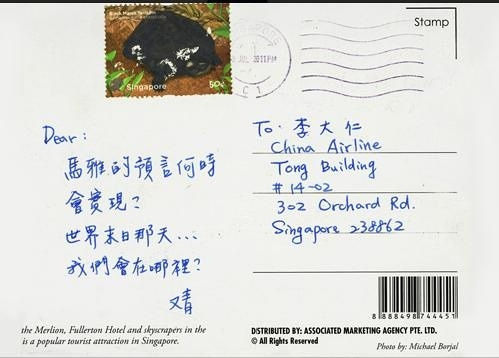 Stamp
Singapore
50c
Dear:
馬雅的預言何時
會實現?
世界末日那天...
我們會在哪裡?
又青
To: 李大仁
China Airline
Tong Building
#14-02
302 Orchard Rd.
Singapore 238862
the Merlion, Fullerton Hotel and skyscrapers in the
is a popular tourist attraction in Singapore.
8888498744451
DISTRIBUTED BY: ASSOCIATED MARKETING AGENCY PTE. LTD.
© All Rights Reserved
Photo by: Michael Borjal